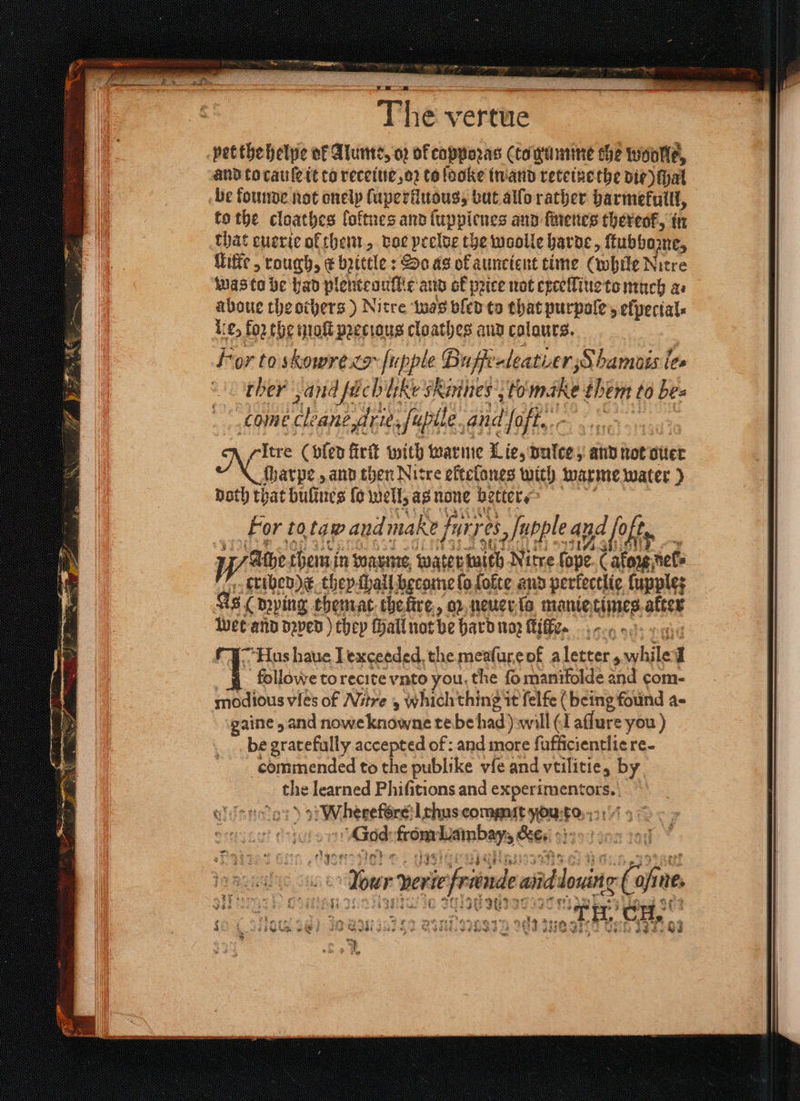 The vertue
yet the helpe of Alume, or of copporas (to gumme the woolle,
and to cause it to receiue, or to sooke in and reteine the die) shal
be founde not onely superfluous, but also rather harmefull,
to the cloathes softnes and suppienes and finenes thereof, in
that euerie of them, doe peelde the woolle harde, stubborne,
stiffe, rough, & brittle: So as of auncient time (while Nitre
was to be had plenteouslie and of price not excessiue to much a-
boue the others) Nitre was vsed to that purpose, especial-
lie, for the most precious cloathes and colours.
For to skowre & supple Buffe-leather, Shamois les
ther, and such like skinnes, to make them to be-
come cleane, drie, suplle, and soft.
Nitre (vsed first with warme Lie, dulce, and not ouer
sharpe, and then Nitre eftsones with warme water)
doth that busines so well, as none better.
For to taw and make furres, supple and soft.
Wathe them in warme, water with Nitre sope (afore, des-
cribed) & they shall become so softe and perfectlie supple:
As (drying them at the fire, or neuer so manie times after
wet and dryed) they shall not be hard nor stiffe.
THus haue I exceeded, the measure of a letter, while I
followe to recite vnto you, the so manifolde and com-
modious vses of Nitre, which thing it selfe (being found a-
gaine, and nowe knowne to be had) will (I assure you)
be gratefully accepted of: and more sufficientlie re-
commended to the publike vse and vtilitie, by
the learned Phisitions and experimentors.
Wherefore I thus commit you to,
God: from Lambay, &c.
Your verie friende and louing Cosine.
TH. CH.